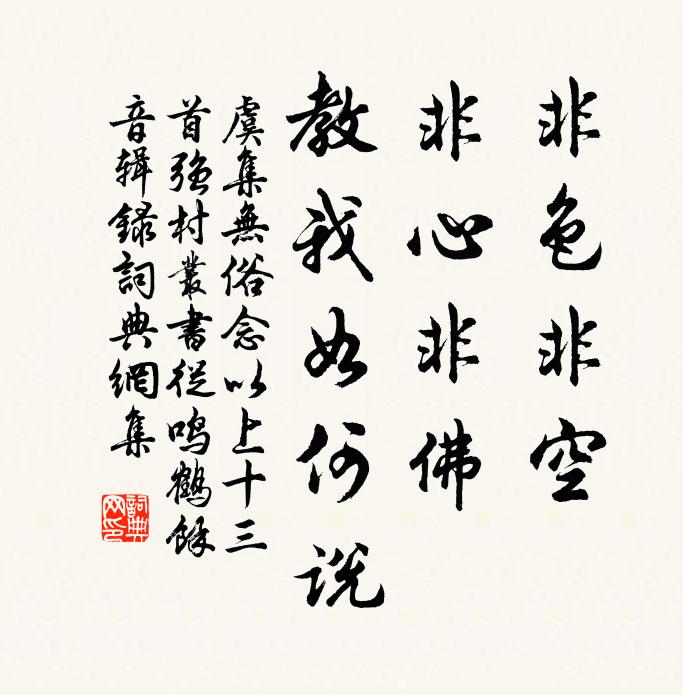 非色非空
非心非佛
教我如何説
虞集無俗念以上十三
首強村叢書從鳴鶴餘
音輯録詞典網集
詞典
网印